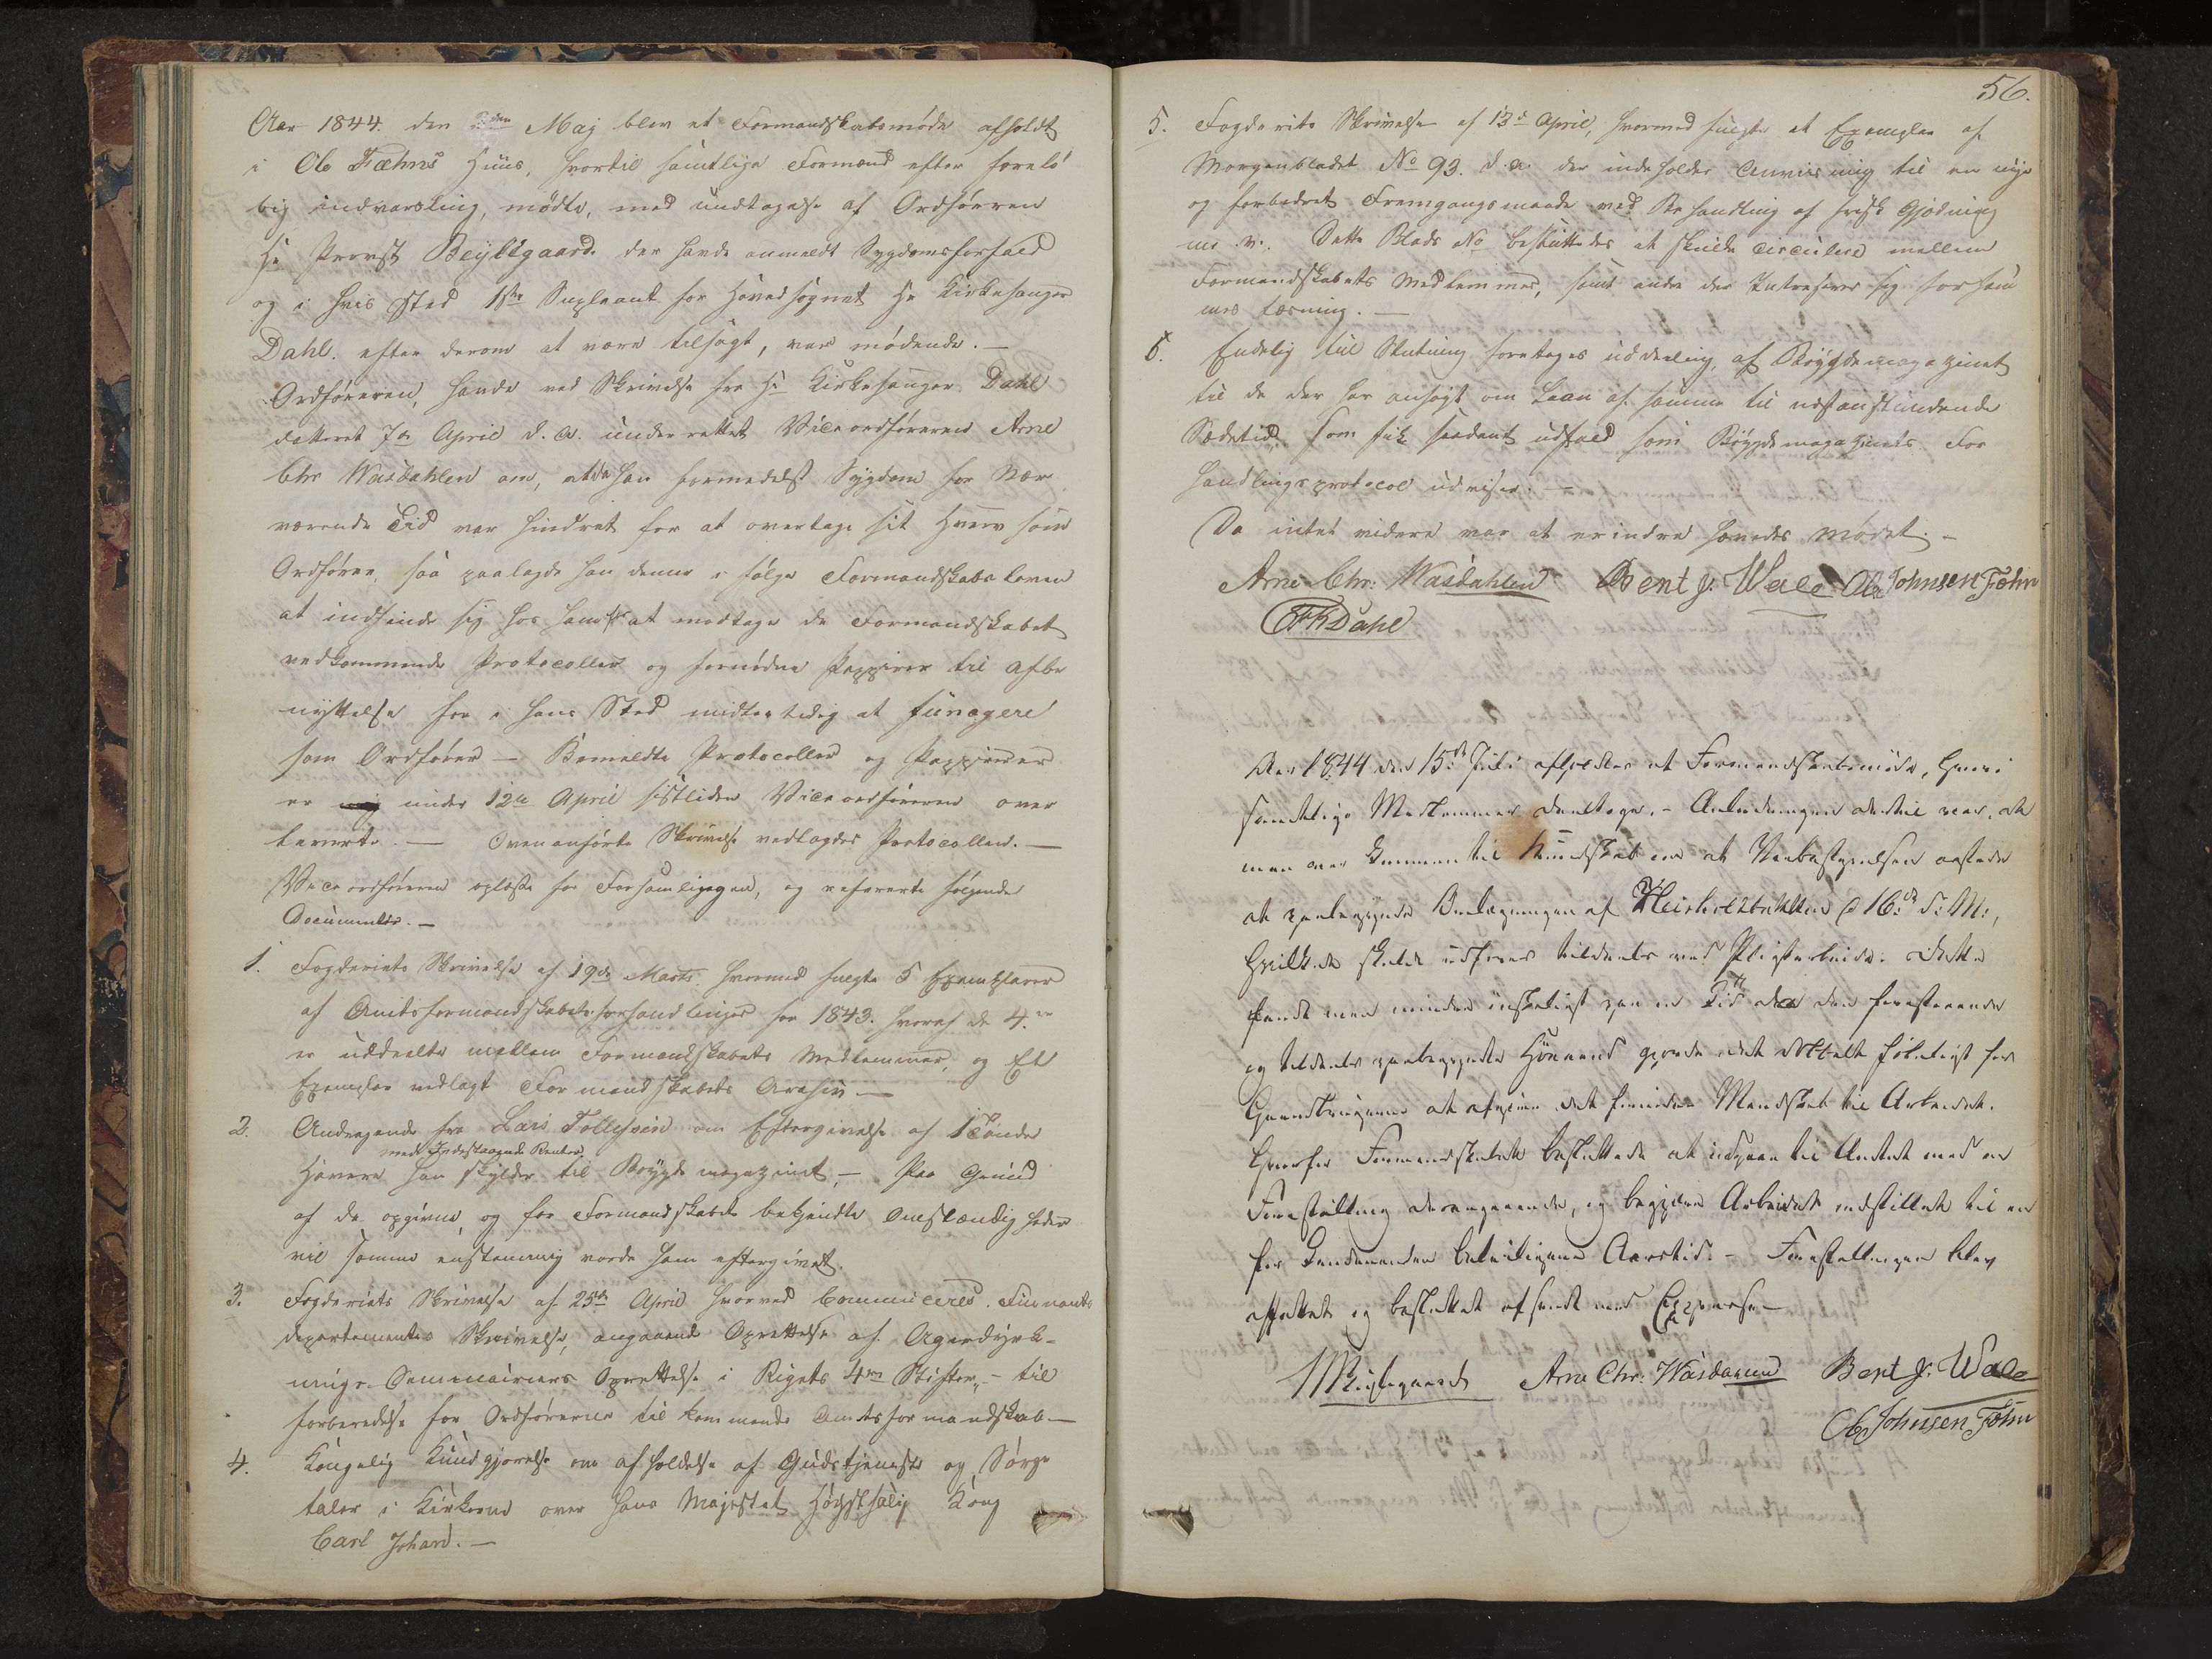 Aar 1844. den 2den Maj blev et Formandskabsmøde afholdt
i Ole Fæhns Huus, hvortil samtlige Formænd efter foreló
big indvarsling, mødte, med undtagelse af Ordføreren
Hr Provst Beyllgaard. der havde anmeldt Sygdomsforfald
og i hvis Sted 1ste Supleant for Hovedsognet Hr Kirkesanger
Dahl. efter derom at være tilsagt, var mødende. —
Ordføreren, havde ved Skrivelse fra Hr Kirkesanger Dahl
datteret 7de April d. A. underrettet Viceordføreren Arne
Chr Wasdahlen om, at da han formedelst Sygdom for Nær
værende Tid var hindret for at overtage sit Hverv som
Ordfører, saa paalagde han denne i følge Formandskabsloven
at indfinde sig hos ham for at modtage de Formandskabet
vedkommende Protocoller og fornødne Pappirer til Afbe
nyttelse for i hans Sted midlertidig at fungere
som Ordfører — Bemeldte Protocoller og Pappirer
er under 12te April sistleden Viceordføreren over
leverte. — Ovenanførte Skrivelse vedlagdes Protocollen. —
Viceordføreren oplæste for Forsamligegen, og refererte følgende
Documenter. —
1. Fogderiets Skrivelse af 19de Marts. hvormed fulgte 5 Exemplarer
af Amtsformandskabets forhandlinger for 1843. hvoraf de 4re
er uddeelte mellem Formandskabets Medlemmer, og Et
Exemplar vedlagt Formandskabets Archiv. —
2. Andragende fra Lars Tollefsen om Eftergivelse af 1 Tønde
med Indestaaende Renter
Havere han skylder til Bøygdemagazinet, — Paa Grund
af de opgivne, og for Formandskabet bekjendte Omstændigheder
vil samme enstemmig vorde ham eftergivet.
3. Fogderiets Skrivelse af 25de April hvorved Communiceres Finants
departementets Skrivelse, angaaende Oprettelse af Agerdyrk-
nings-Seminairiers Oprettelse i Rigets 4re Stifter, — til
forberedelse for Ordførerne til kommende Amtsformandskab —
4. Kongelig Kundgjørelse om afholdelse af Gudstjeneste og Sørge
taler i Kirkerne over hans Majestæt Høystsalig Kong
Carl Johan. —
56.
5. Fogderiets Skrivelse af 13de April, hvormed fulgte et Exemplar af
Morgenbladet No 93. d. A. der indeholder Anviisning til en nye
og forbedret Fremgangsmaade ved Behandling af frisk Gjødning
m. v. Dette Blads No besluttedes at skulde circulere mellem
Formandskabets Medlemmer, samt andre der Intreserer sig for sam
mes læsning. —
6. Endelig til Slutning foretages uddeeling af Bøygdemagazinet
til de der har ansøgt om Laan af samme til nestanstundende
Sædetid, som fik saadant udfald som Bøygdemagazinets For
handlingsprotocol udviser. —
Da intet videre var at erindre hævedes Mødet. —
Arne Chr: Wasdahlen Bent J. Wale Ole Johnsen Fæhn
Dahl
Aar 1844 den 15de Juli afholdtes et Formandskabsmøde, hvori
samtlige Medlemmer deeltoge. – Anledningen dertil var, at
man var kommen til Kundskab om at Veibestyrelsen agtede
at paabegynde Omlægningen af d 16de d: M:,
hvilket skulde udføres tildeels ved Pligtarbeide. Dette
fandt man mindre ønskeligt paa en Tid da den forestaaende
og tildeels paabegyndte Høeaand gjorde det dobbelt føleligt for
Gaardbrugerne at afgive det fornødne Mandskab til Arbeidet.
Hvorfor Formandskabet besluttede at indgaae til Amtet med en
Forestilling derangaaende, og begjære Arbeidet indstillet til en
for beleiligere Aarstid. – Forestillingen blev
affattet og besluttet afsendt med Expresse —
Arne Chr: Wasdahlen Bent J. Wale
Ole Johnsen Fæhn